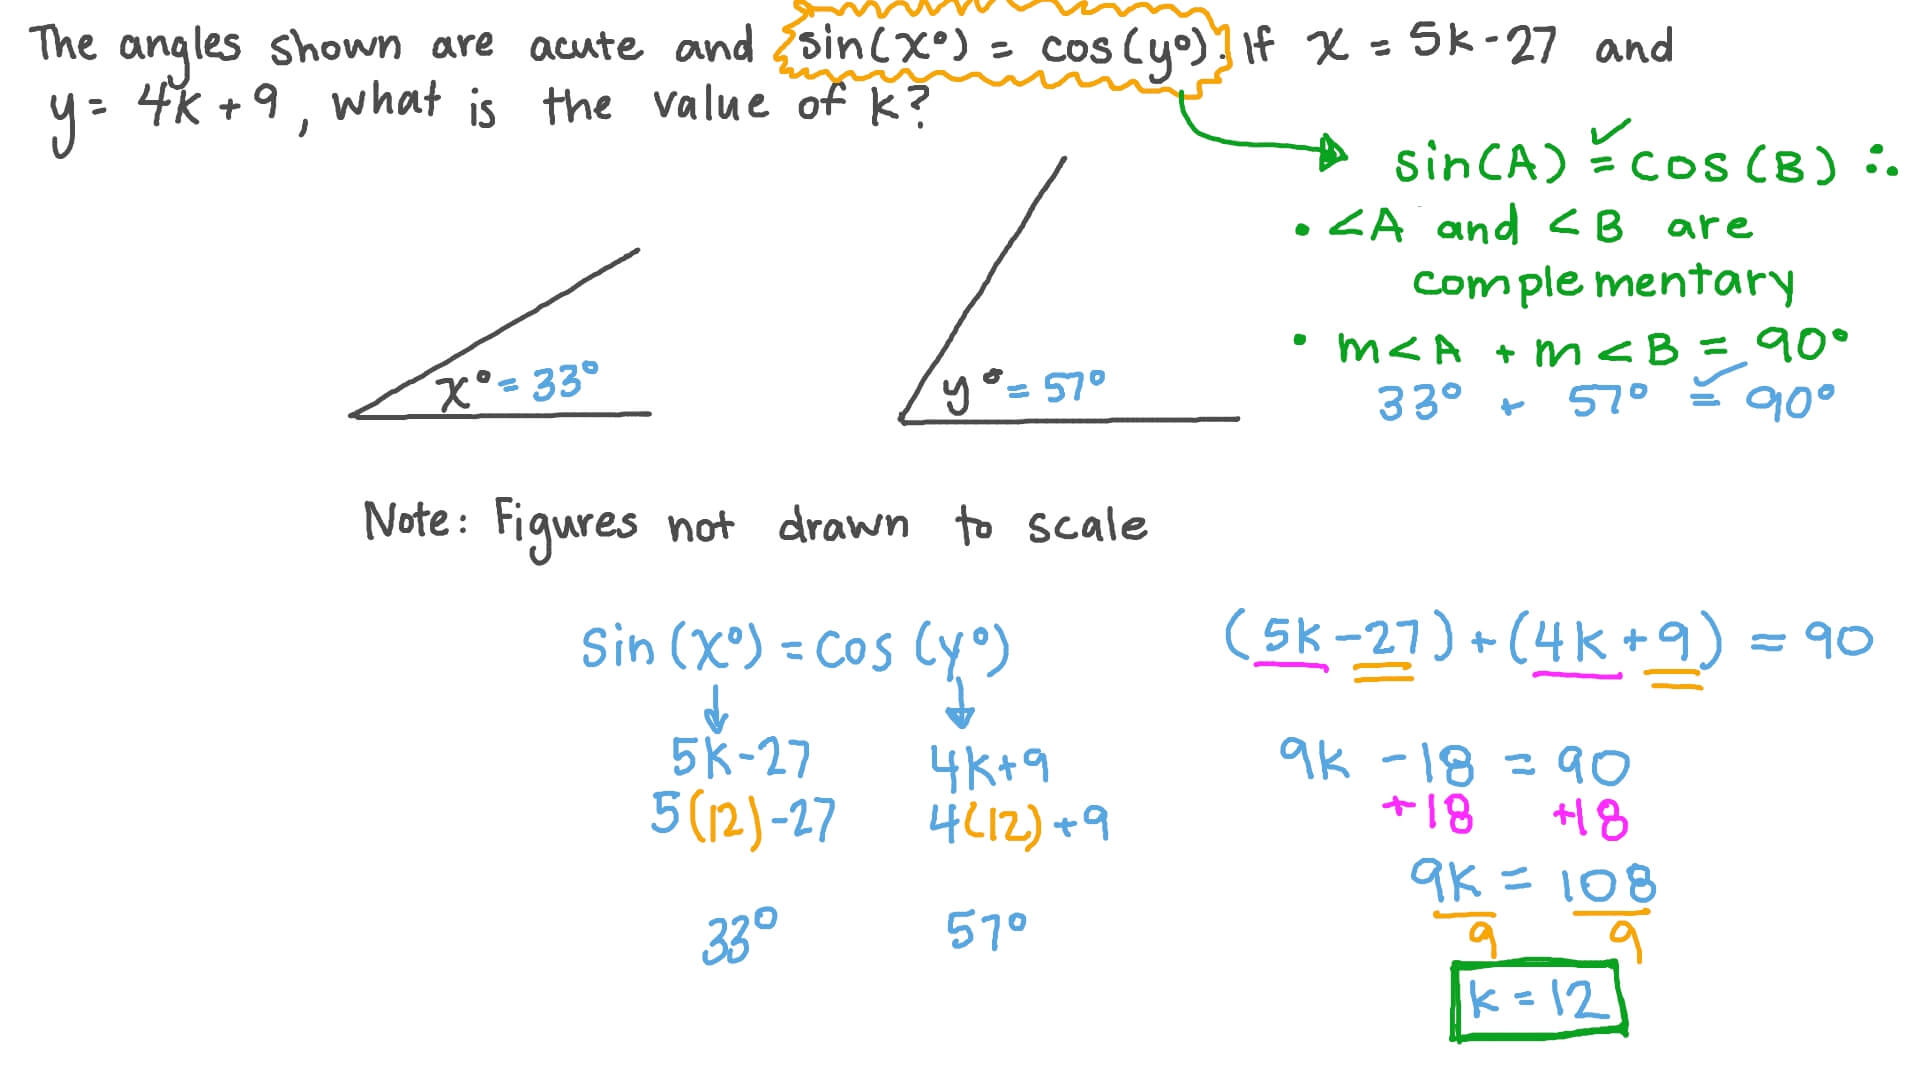 The angles shown are acute and sin(x°) = cos(y°). If x = 5k - 27 and
y = 4k + 9, what is the value of k?
sin(A) = cos(B) ∴
• <A and <B are
complementary
• m<A + m<B = 90°
33° + 57° = 90°
x° = 33°
y° = 57°
Note: Figures not drawn to scale
Sin(x°) = cos(y°)
5k-27 4k+9
5(12)-27 4(12)+9
33° 57°
(5k-27)+(4k+9) = 90
9k - 18 = 90
+18 +18
9k = 108
9 9
k = 12